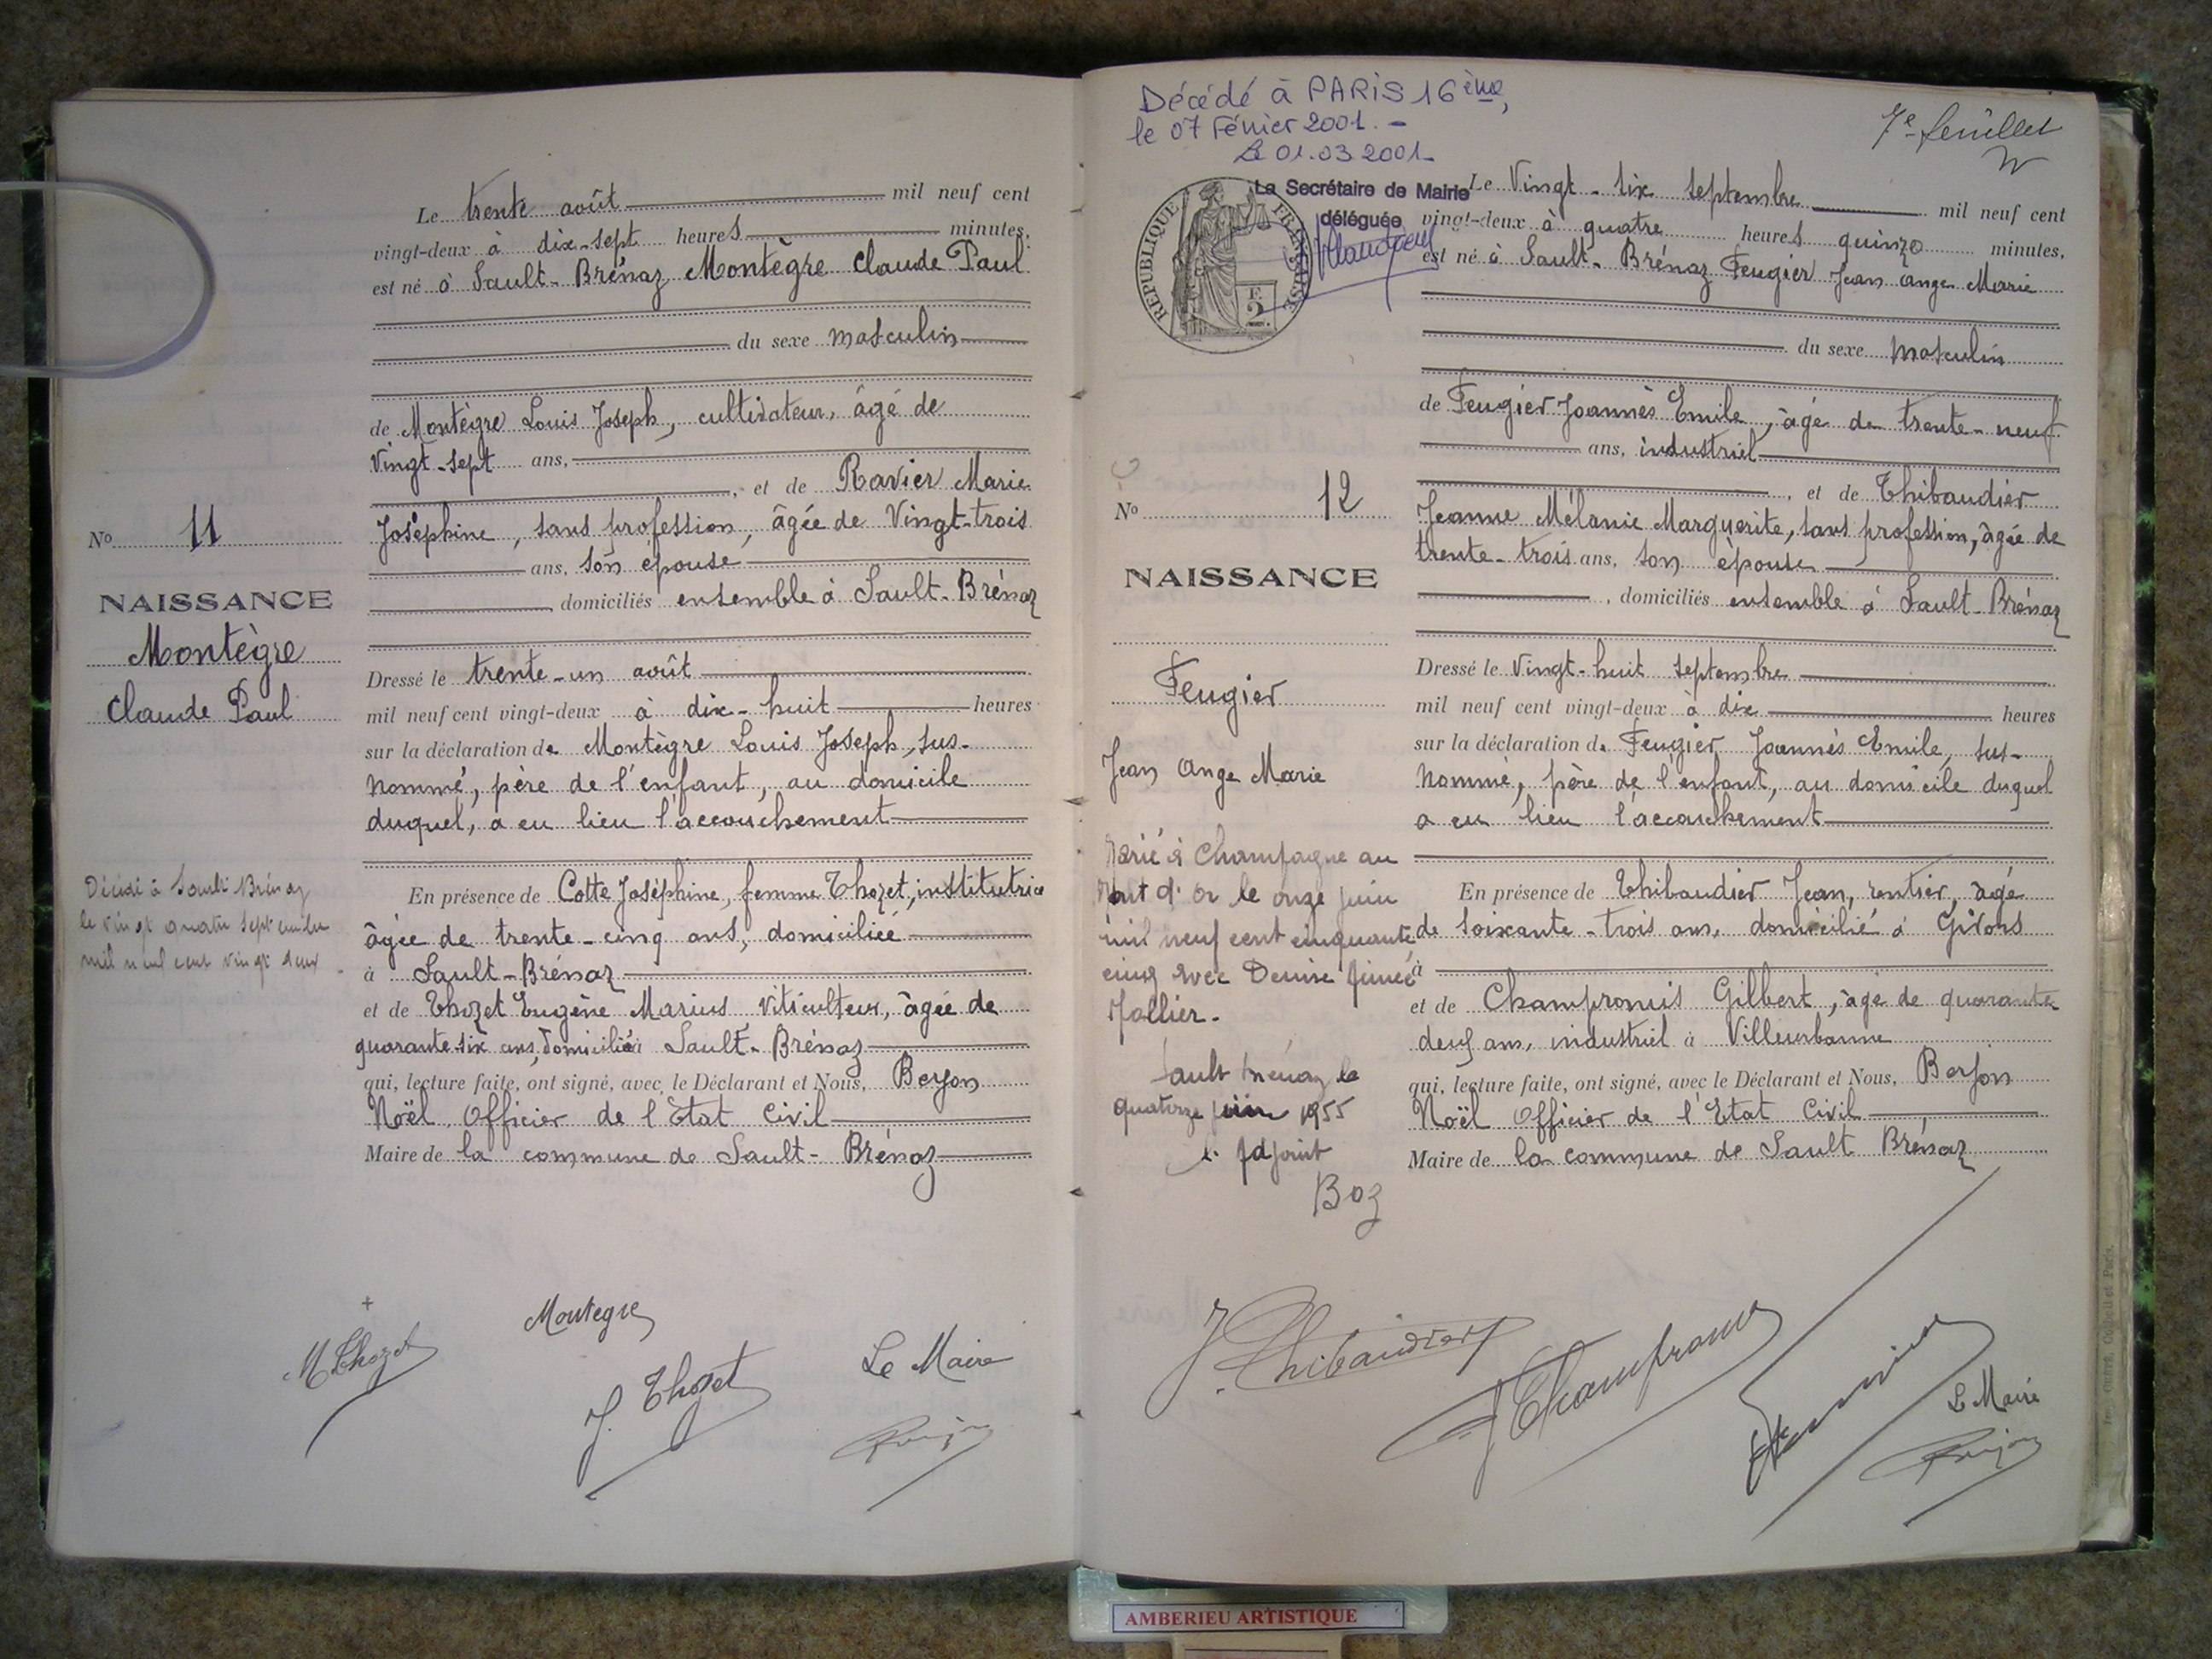 Le trente août mil neuf cent
vingt-deux à dix-sept heures minutes,
est né à Sault-Brénaz Montègre Claude Paul
du sexe masculin
de Montègre Louis Joseph, cultivateur, âgé de
Vingt-sept ans,
, et de Ravier Marie
Joséphine, sans profession, âgée de Vingt-trois
ans, son épouse
domiciliés ensemble à Sault-Brénaz
Dressé le trente-un août
mil neuf cent vingt-deux à dix-huit heures
sur la déclaration de Montègre Louis Joseph, sus-
nommé, père de l'enfant, au domicile
duquel, a eu lieu l'accouchement
En présence de Cotte Joséphine, femme Thozet, institutrice
âgée de trente-cinq ans, domiciliée
à Sault-Brénaz
et de Thozet Eugène Marius viticulteur, âgée de
quarante-six ans, domicilié à Sault-Brénaz
qui, lecture faite, ont signé, avec le Déclarant et Nous, Berjon
Noël Officier de l'Etat Civil
Maire de la commune de Sault-Brénaz
No 11
NAISSANCE
Montègre
Claude Paul
Décédé à Sault Brénaz
le vingt quatre septembre
mil neuf cent vingt deux
M Thozet
Montegre
J. Thozet
Le Maire
Berjon
Décédé à PARIS 16ème,
le 07 Février 2001. -
Le 01.03.2001-
La Secrétaire de Mairie
déléguée
7e feuillet
REPUBLIQUE FRANÇAISE
F.
2.
Le Vingt-six septembre mil neuf cent
vingt-deux à quatre heures quinze minutes,
est né à Sault-Brénaz Feugier Jean Ange Marie
du sexe masculin
de Feugier Joannès Emile, âgé de trente-neuf
ans, industriel
, et de Thibaudier
Jeanne Mélanie Marguerite, sans profession, âgée de
trente-trois ans, son épouse
, domiciliés ensemble à Sault-Brénaz
Dressé le Vingt-huit septembre
mil neuf cent vingt-deux à dix heures
sur la déclaration de Feugier Joannès Emile, sus-
nommé, père de l'enfant, au domicile duquel
a eu lieu l'accouchement
En présence de Thibaudier Jean, rentier, âgé
de soixante-trois ans, domicilié à Givors
à
et de Champromis Gilbert, âgé de quarante
deux ans, industriel à Villeurbanne
qui, lecture faite, ont signé, avec le Déclarant et Nous, Berjon
Noël Officier de l'Etat Civil
Maire de la commune de Sault Brénaz
No 12
NAISSANCE
Feugier
Jean Ange Marie
Marié à Champagne au
Mont d'Or le onze juin
mil neuf cent cinquante
cinq avec Denise Aimée
Sault Brénaz le
quatorze juin 1955
L'Adjoint
Boz
J. Thibaudier
Le Maire
Berjon
AMBERIEU ARTISTIQUE